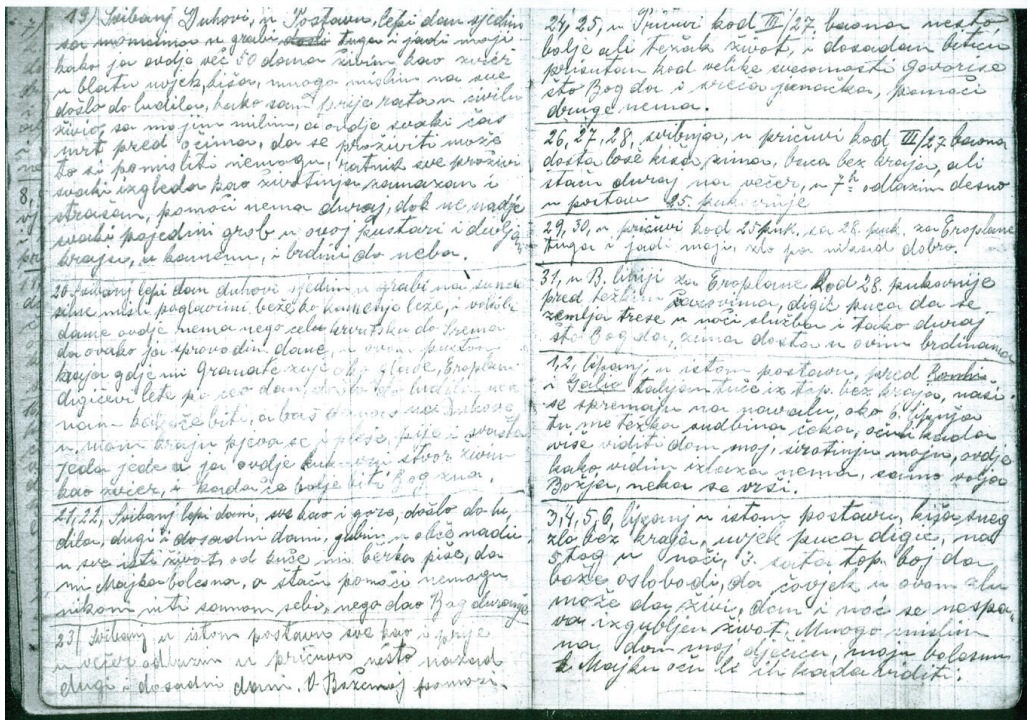 19) Svibanj Duhovi, u Postavu, lepi dan sjedim
sa momcima u grabi, tuga i jadi moji
kako ja ovdje već 50 dana živim kao zvier
u blatu uvjek, kiša, mnogo mislim na sve
došlo do ludila, kako sam prije rata u civilu
živio sa mojim milim, a ovdje svaki čas
smrt pred očima, da se proživiti može
to si pomisliti nemogu, ratnik sve proživi
svaki izgleda kao životinja zamazan i
strašan, pomoći nema duraj, dok ne nadje
svaki pojedini grob u ovoj pustari i divlj
kraju, u kamenu, i brdini do neba.
20. Svibanj lepi dan duhovi sjedim u grabi na suncu
silne misli poglavimi beže ko kamenje leže, i
dame ovdje nema nego celu hrvatsku do Srema
da ovako ja sprovodim dane, u ovom pustom
kraja gdje mi Granate zuje oko glave, Eroplani
digićevi lete po ceo dan, ludilu
nam biti, a baš danas na Duhove
u mom kraju pjeva se i pleše, pije i svašta
jeda jede a ja ovdje kukavni stvor živim
kao zvier, i kada će bolje biti Bog zna.
21, 22, Svibanj lepi dani, sve kao i gore, došlo do lu
dila, dugi i dosadni dani, gubim u obće nadu,
u sve isti život, od kuće mi berka piše, da
mi Majka bolesna, a staću pomoći nemogu
nikom niti samom sebi, nego dao Bog duranje
23) Svibanj, u istom postavu sve kao i prije
u večer odlazim u pričuvu nešto nazad
dugi i dosadni dani. O Bože moj pomozi.
24, 25, u Pričuvi kod III/27. baona nešto
bolje ali težak život, i dosadan bitići
prisutan kod velike svečanosti govori se
što Bog da i sreća junačka, pomoći
druge nema.
26, 27, 28, svibnja, u pričuvi kod III/27 baona
dosta loše kiša, zima, buca bez kraja, ali
staću duraj na večer, u 7h odlazim desno
u postav 25. pukovnije
29, 30, u pričuvi kod 25 puk. sa 28. puk. za Eroplane
tuga i jadi moji, zlo pa nikad dobro.
31, u B. liniji za Eroplane kod 28. pukovnije
pred težkim, digić puca da se
zemlja trese u noći služba i tako duraj
što Bog da, zima dosta u ovim brdinama
1, 2, lipanj, u istom postavu, pred
i Galio taljan tuče iz top. bez kraja, naši
se spremaju na navalu, oko 6. lipnja
tu me težka sudbina čeka, oću kada
više viditi dom moj, sirotinju moju, ovdje
kako vidim izlaza nema, samo volja
Božja, neka se vrši.
3, 4, 5, 6, lipanj u istom postavu, kiša, sneg
zlo bez kraja, uvjek puca digić, na
5 tog u noći, 3. sata top. boj da
bože oslobodi, da čovjek u ovom zlu
može da živi, dan i noć se nespa
va izgubljen život. Mnogo mislim
na dom moj djecicu, moju bolesnu
Majku oću li ih kada viditi.